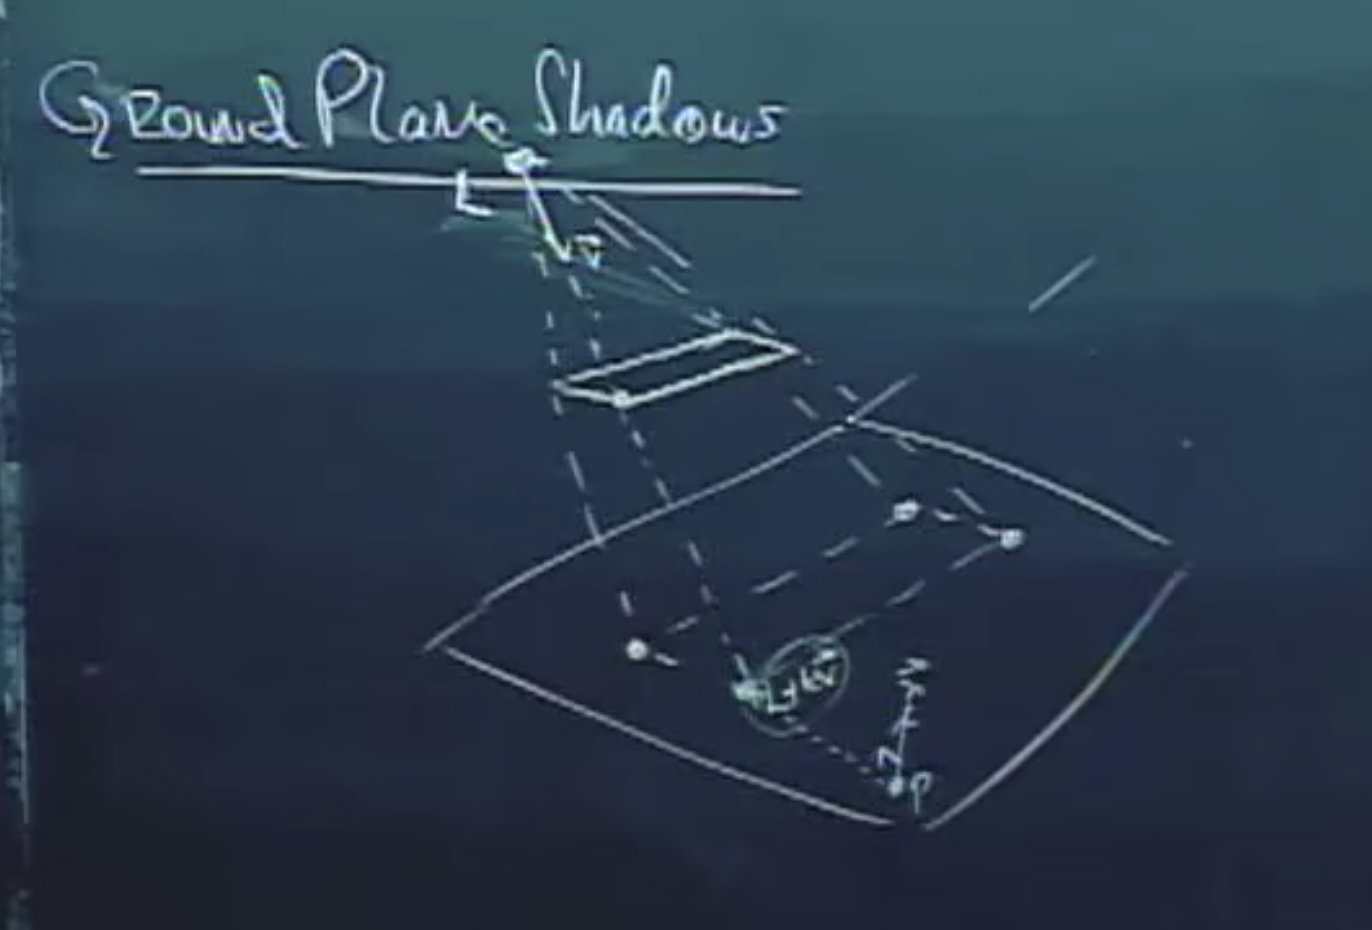 Ground Plane Shadows
L
v
L+kv
P